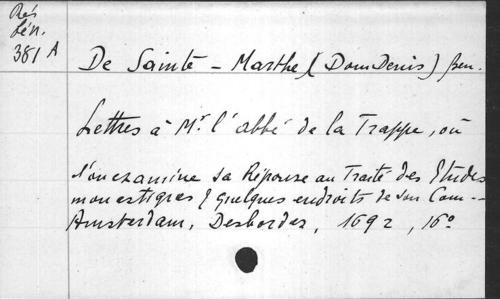 Rés
Lén.
381 A
De Sainte - Marthe (Dom Denis) ben.
Lettres à Mr. l'abbé de la Trappe, où
l'on examine sa Réponse au Traité des Etudes
monastiques & quelques endroits de son Com--
Amsterdam, Desbordes, 1692, 16°